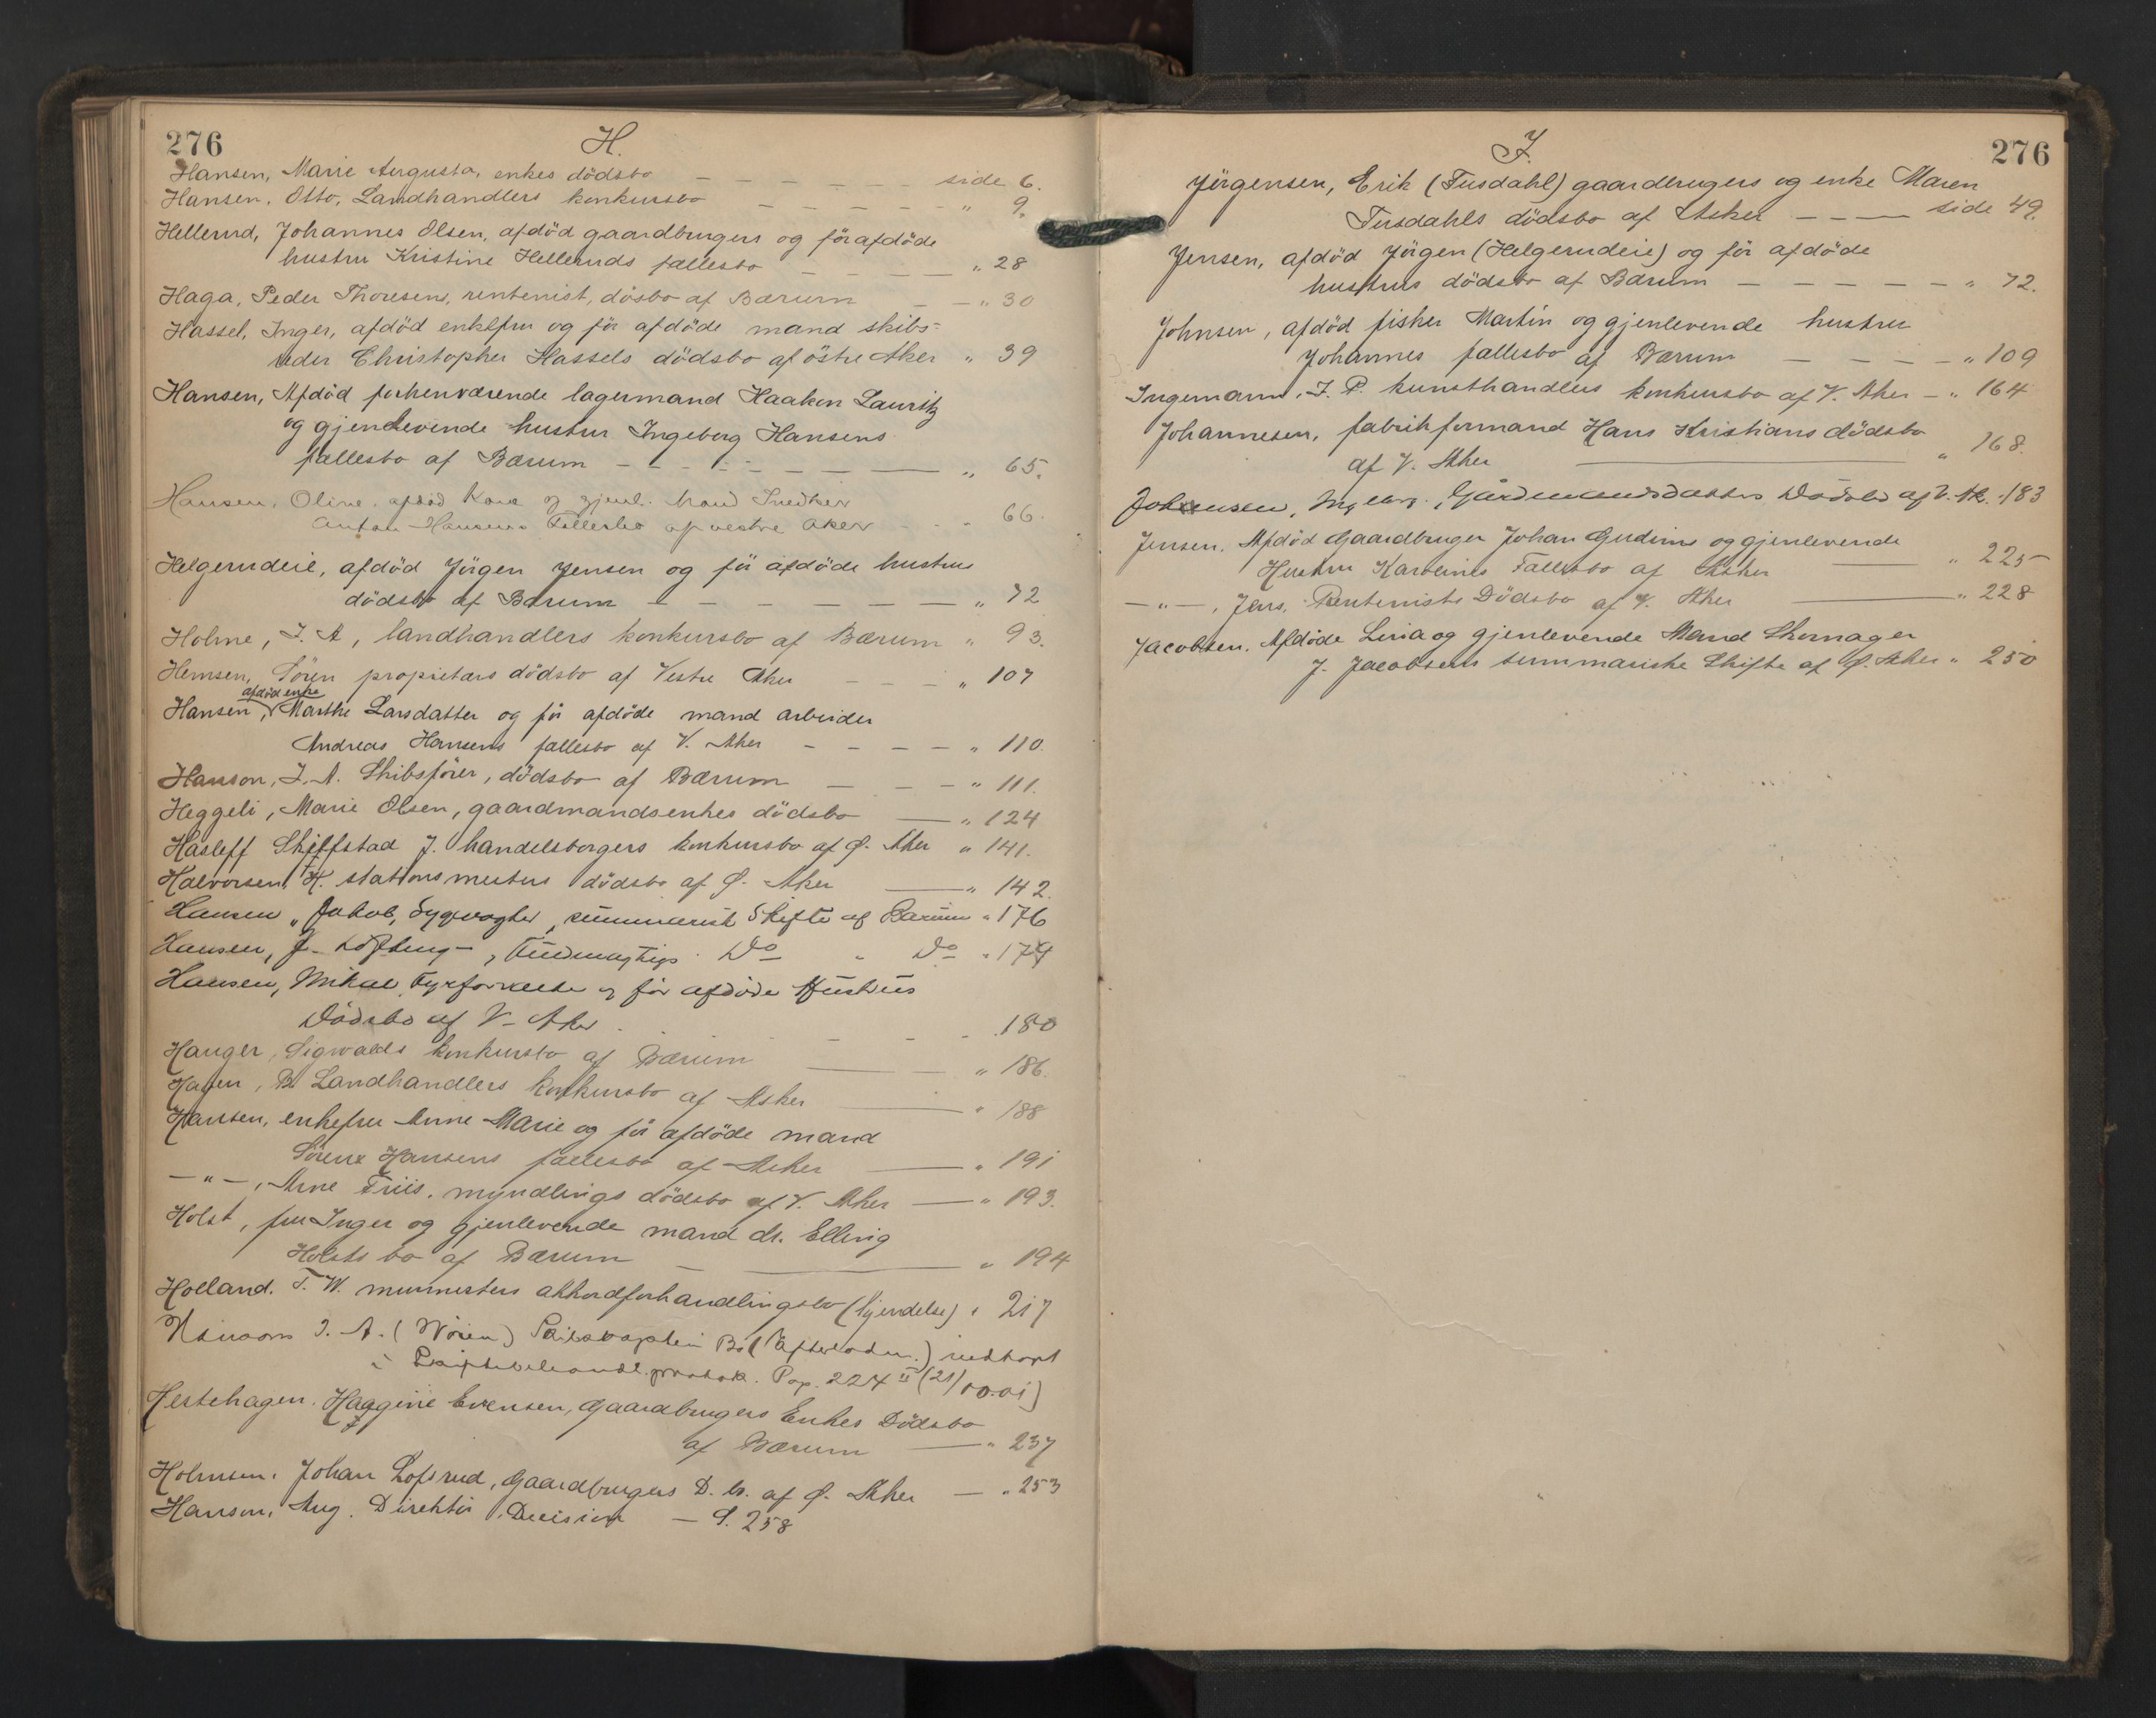 276
H.
Hansen, Marie Augusta, enkes dödsbo — — — — — — side 6.
Hansen, Otto, Landhandlers konkursbo — — — — — " 9.
Hellerud, Johannes Olsen, afdöd gaardbrugers og förafdöde
hustru Kristine Helleruds fællesbo — — — — — " 28
Haga, Peder Thoresens, rentenist, dösbo af Bærum — — " 30
Hassel, Inger, afdöd enkefru og för afdöde mand skibs-
reder Christopher Hassels dödsbo af östre Aker " 39
Hansen, Afdöd forhenværende lagermand Haakon Lauritz
og gjenlevende hustru Ingeborg Hansens
fællesbo af Bærum — — — — — — — " 65.
Hansen, Oline, afdöd Kone og gjenl. Mand Snedker
Anton Hansens Fællesbo af vestre Aker - - - 66.
Helgerudeie, afdöd Jörgen Jensen og för afdöde hustrus
dödsbo af Bærum — — — — — — " 72
Holme, J. A, landhandlers konkursbo af Bærum " 93.
Hemsen, Sören proprietærs dödsbo af Vestre Aker — — — " 107
afdöd enke
Hansen, Marthe Larsdatter og för afdöde mand arbeider
Andreas Hansens fællesbo af V. Aker — — — — " 110.
Hanson, J. A. Skibsförer, dödsbo af Bærum — — — " 111.
Heggeli, Marie Olsen, gaardmandsenkes dödsbo — " 124
Hasleff Skiffstad J. handelsborgers konkursbo af Ø. Aker " 141.
Halvorsen, H. stationsmesters dödsbo af Ø. Aker — " 142.
Hansen, Jakob, Sygevogter, summarisk Skifte af Bærum " 176
Hansen, J. , Do " Do " 179
Hansen, Mikal Fyrforvalter og för afdöde Hustrus
Dödsbo af V. Aker - - - 180
Hauger, Sigwalds konkursbo af Bærum — — " 186.
Hagen, B. Landhandlers konkursbo af Asker — " 188
Hansen, enkefru Anne Marie og för afdöde mand
Sörene Hansens fællesbo af Asker — " 191
— " —, Arne Friis, myndlings dödsbo af V. Aker — " 193.
Holst, fru Inger og gjenlevende mand dr. Elling
Holsts bo af Bærum — — " 194
Holland. T. W. murmesters akkordforhandlingsbo (kjendelse) " 217
J. A. ( ) Bo ( ) indtaget
i . Pag. 224 II (21/10.01)
Hestehagen. Haagine Evensen, Gaardbrugers Enkes Dödsbo
af Bærum — " 237
Holmsen. Johan Lofsrud, Gaardbrugers D. b. af Ø. Aker — " 253
Hanson, Aug. Direktör, Decision — S. 258
276
J.
Jörgensen, Erik (Tusdahl) gaardbrugers og enke Maren
Tusdahls dödsbo af Asker — — — side 49.
Jensen, afdöd Jörgen (Helgerudeie) og för afdöde
hustrus dödsbo af Bærum — — — — — " 72.
Johnsen, afdöd fisker Martin og gjenlevende hustru
Johannes fællesbo af Bærum — — — — " 109
Ingemann, J. P. kunsthandlers konkursbo af V. Aker — " 164
Johannesen, fabrikformand Hans Kristians dödsbo
af V. Aker — " 168.
Johansen, Ingebrg., Gårdmandsdatters Dödsbo af V. Ak. " 183
Jensen, Afdöd Gaardbruger Johan Gudims og gjenlevende
Hustru Karolines Fællesbo af Asker — " 225
— " —, Jens, Rentenists Dödsbo af V. Aker — " 228
Jacobsen. Afdöde Lina og gjenlevende Mand Skomager
J. Jacobsens summariske Skifte af Ø. Aker " 250